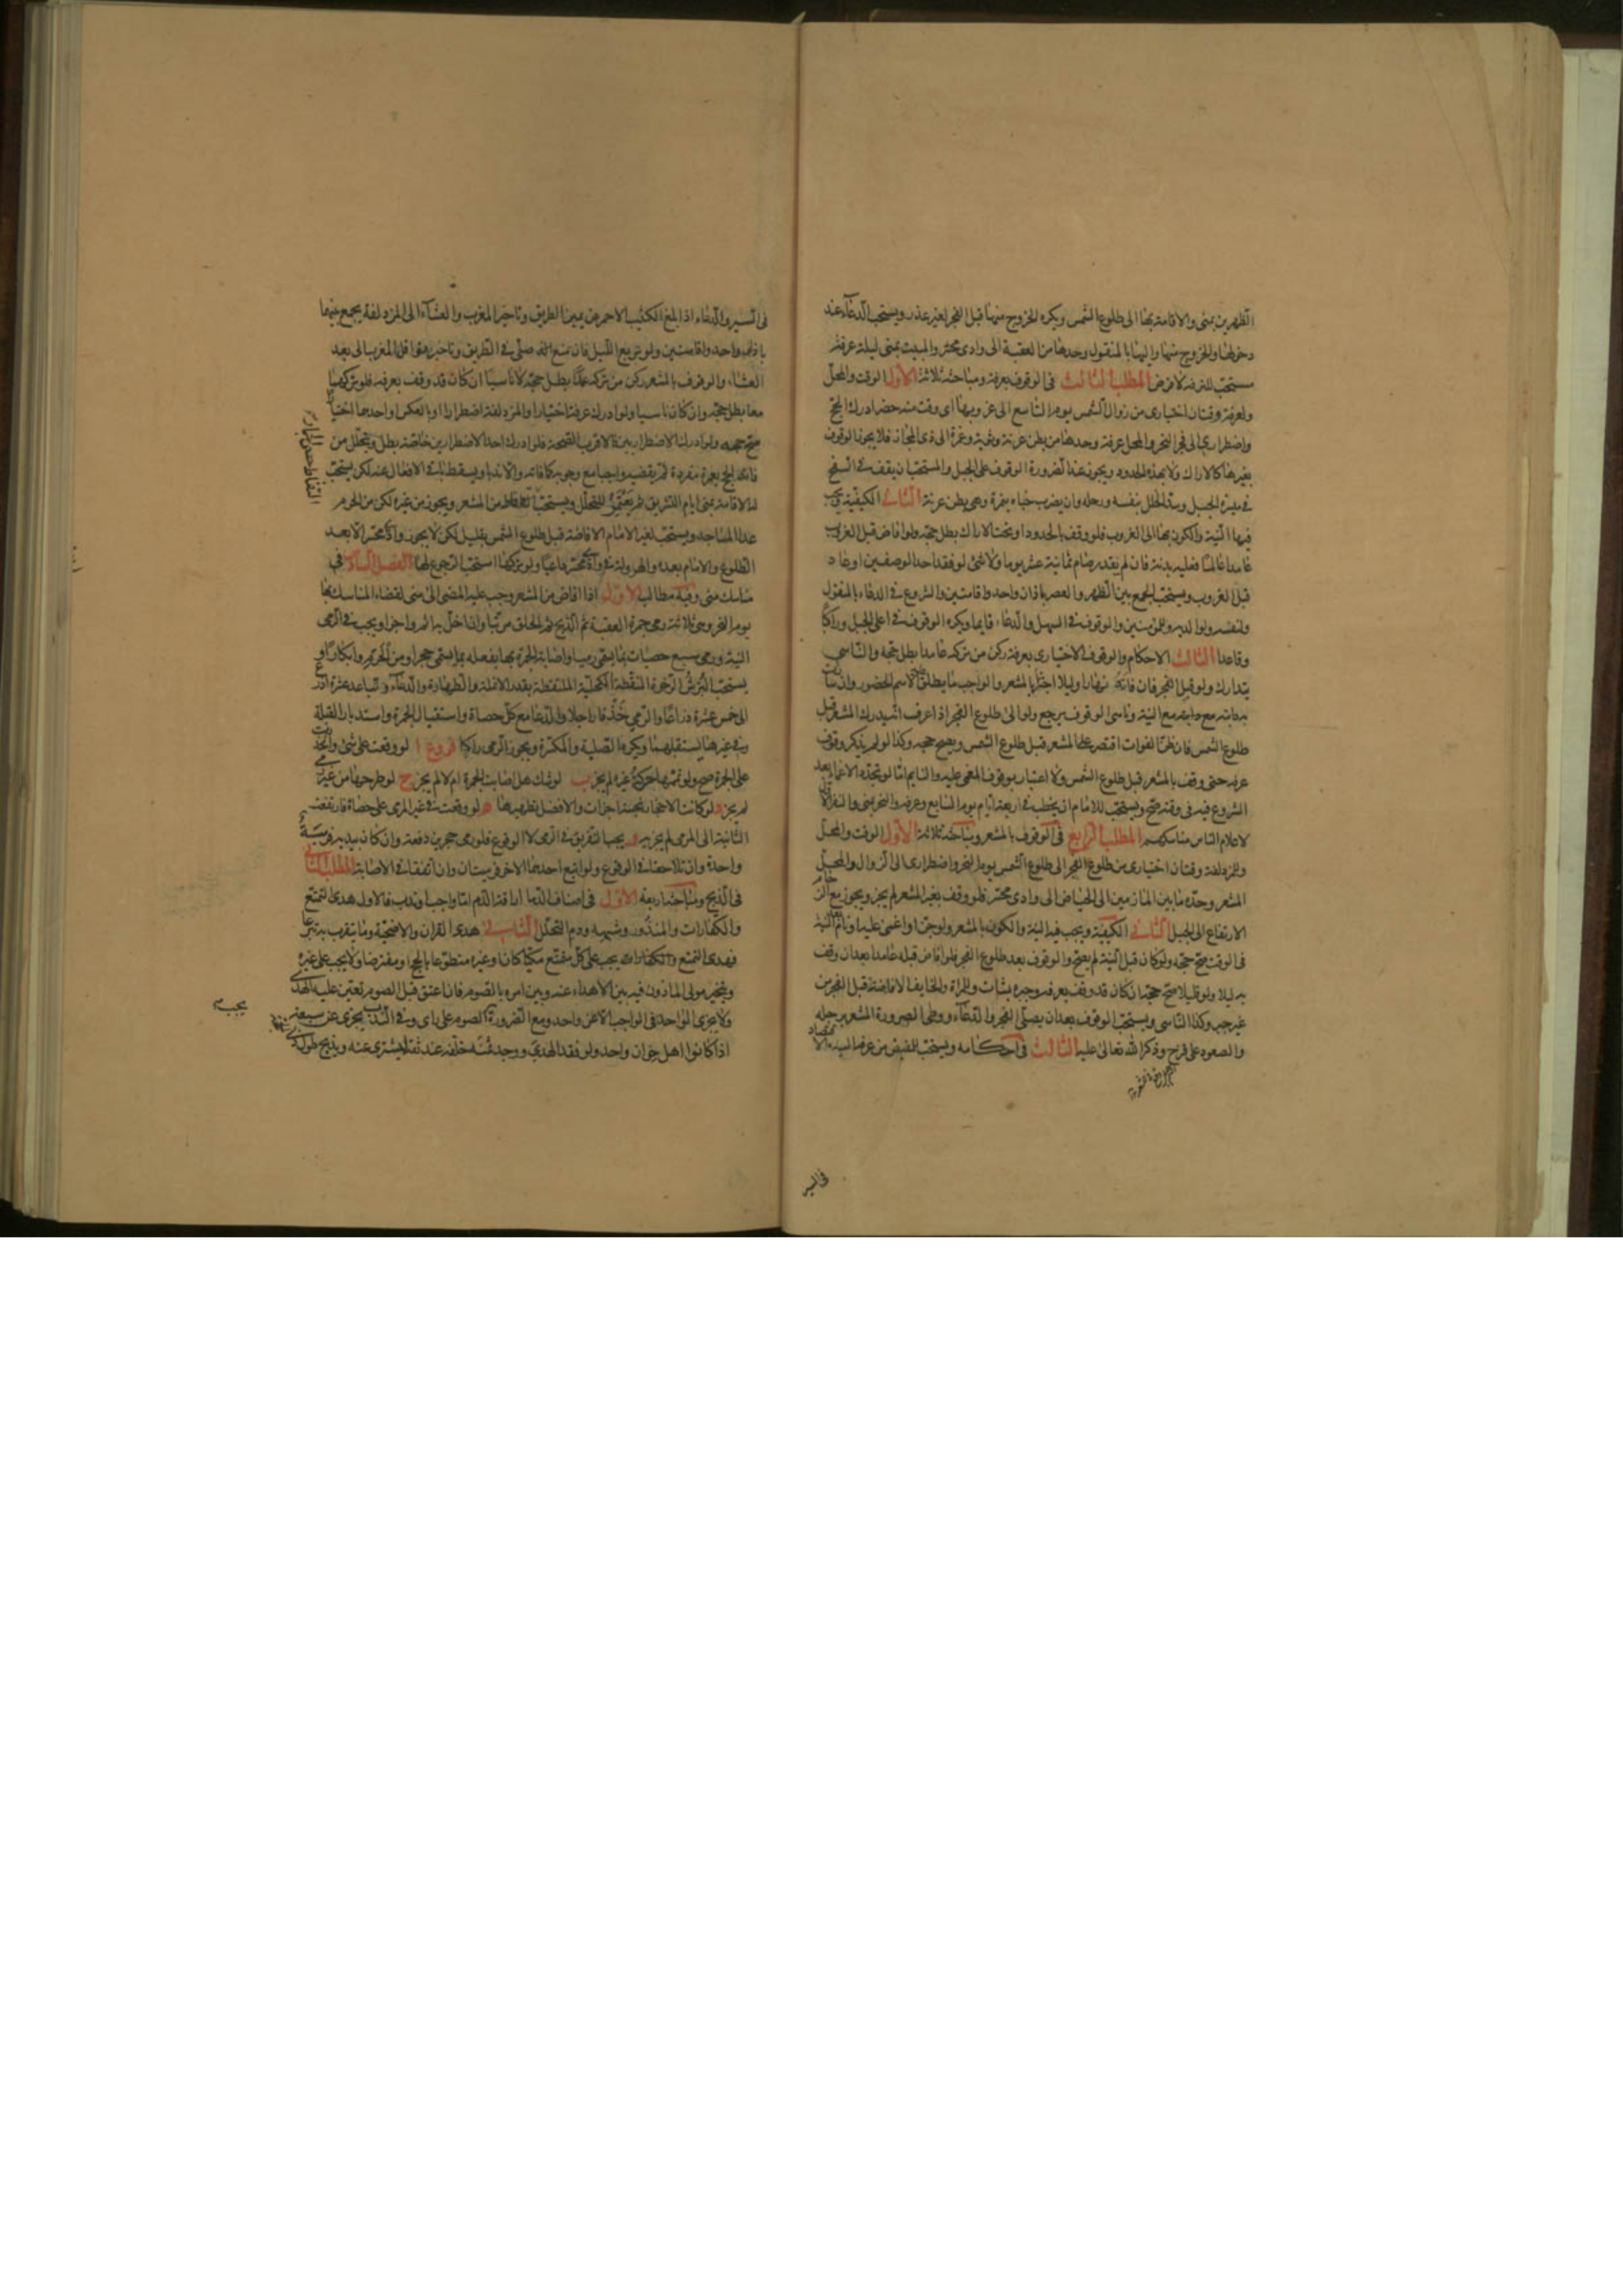 الظهرين بمنى والاقامة بها الى طلوع الشمس ويكره الخروج منها قبل الفجر لغير عذر ويستحب الدعاء عند
دخولها والخروج منها واليها بالمنقول وحدها من العقبة الى وادى محسر والمبيت بمنى ليلة عرفة
مستحب للترفه لا فرض المطلب الثالث فى الوقوف بعرفة ومباحثه ثلاثة الاول الوقت والمحل
ولعرفة وقتان اختيارى من زوال الشمس يوم التاسع الى غروبها اى وقت منه حضر ادرك الحج
واضطرارى الى فجر النحر والمحل عرفة وحدها من بطن عرنة وثوية ونمرة الى ذى المجاز فلا يجوز الوقوف
بغيرها كالاراك ولا بهذه الحدود ويجوز عند الضرورة الوقوف على الجبل والمستحب ان يقف فى السفح
فى ميسرة الجبل وسد الخلل بنفسه ورحله وان يضرب خباه بنمرة وهى بطن عرنة الثانى الكيفية ويجب
فيها النية والكون بها الى الغروب فلو وقف بالحدود او تحت الاراك بطل حجه ولو افاض قبل الغروب
عامدا عالما فعليه بدنة فان لم يقدر صام ثمانية عشر يوما ولا شئ لو فقد احد الوصفين او عاد
قبل الغروب ويستحب الجمع بين الظهر والعصر باذان واحد واقامتين والشروع فى الدعاء بالمنقول
ولنفسه ولوالديه وللمؤمنين والوقوف فى السهل والدعاء قايما ويكره الوقوف فى اعلى الجبل وراكبا
وقاعدا الثالث الاحكام والوقوف الاختيارى بعرفة ركن من تركه عامدا بطل حجه والناسى
يتدارك ولو قبل الفجر فان فاته نهارا وليلا اجتزأ بالمشعر والواجب ما يطلق عليه اسم الحضور وان سارت
به دابته مع النية وناسى الوقوف يرجع ولو الى طلوع الفجر اذا عرف انه يدرك المشعر قبل
طلوع الشمس فان ظن الفوات اقتصر على المشعر قبل طلوع الشمس ويصح حجه وكذا لو لم يذكر وقوف
عرفه حتى وقف بالمشعر قبل طلوع الشمس ولا اعتبار بوقوف المغمى عليه والنايم اما لو تجدد الاغماء بعد
الشروع فيه فى وقته صح ويستحب للامام ان يخطب فى اربعة ايام يوم السابع وعرفه والنحر بمنى والنفر الاول
لاعلام الناس مناسكهم المطلب الرابع فى الوقوف بالمشعر ومباحثه ثلاثة الاول الوقت والمحل
وللمزدلفة وقتان اختيارى من طلوع الفجر الى طلوع الشمس يوم النحر واضطرارى الى الزوال والمحل
المشعر وحده ما بين المازمين الى الحياض الى وادى محسر فلو وقف بغير المشعر لم يجز ويجوز مع الزحام
الارتفاع الى الجبل الثانى الكيفية ويجب فيه النية والكون بالمشعر ولو جن او اغمى عليه او نام بعد النية
فى الوقت صح حجه ولو كان قبل النية لم يصح والوقوف بعد طلوع الفجر فلو افاض قبله عامدا بعد ان وقف
به ليلا ولو قليلا صح حجه ان كان قد وقف بعرفه وجبره بشاة وللمراة والخايف الافاضة قبل الفجر من
غير جبر وكذا الناسى ويستحب الوقوف بعد ان يصلى الفجر والدعاء ووطى الصرورة المشعر برجله
والصعود على قزح وذكر الله تعالى عليه الثالث فى احكامه ويستحب للمفيض من عرفة اليه الاقتصاد
فى السير
فى السير والدعاء اذا بلغ الكثيب الاحمر عن يمين الطريق وتاخير المغرب والعشاء الى المزدلفة يجمع بينهما
باذان واحد واقامتين ولو تربع الليل فان منع صلى فى الطريق وتاخير نوافل المغرب الى بعد
العشاء والوقوف بالمشعر ركن من تركه عمدا بطل حجه لا ناسيا ان كان قد وقف بعرفه فلو تركهما
معا بطل حجه وان كان ناسيا ولو ادرك عرفة اختيارا والمزدلفة اضطرارا او بالعكس واحدهما اختيارا
صح حجه ولو ادرك الاضطراريين فالاقرب الصحة فلو ادرك احد الاضطراريين خاصة بطل ويتحلل من
فاته الحج بعمرة مفردة ثم يقضيه واجبا مع وجوبه كما فاته والا ندبا ويسقط باقى الافعال عنه لكن يستحب
له الاقامة بمنى ايام التشريق ثم يعتمر للتحلل ويستحب التقاط من المشعر ويجوز من غيره لكن من الحرم
التقاط حصى الجمار
عدا المساجد ويستحب لغير الامام الافاضة قبل طلوع الشمس بقليل لكن لا يجوز وادى محسر الا بعد
الطلوع والامام بعده والهرولة فى وادى محسر داعيا ولو تركها استحب الرجوع لها الفصل السادس فى
مناسك منى وفيه مطالب الاول اذا افاض من المشعر وجب عليه المضى الى منى لقضاء المناسك بها
يوم النحر وهى ثلاثة رمى جمرة العقبة ثم الذبح ثم الحلق مرتبا وان اخل به اثم واجزا ويجب فى الرمى
النية ورمى سبع حصيات بما يسمى رميا واصابة الجمرة بها بفعله بما يسمى حجرا ومن الحرم وابكارا و
يستحب البرش الرخوة المنقطة الكحلية الملتقطة بقدر الانملة والطهارة والدعاء وتباعد عشرة اذرع
الى خمس عشرة ذراعا والرمى خذفا راجلا والدعا مع كل حصاة واستقبال الجمرة واستدبار القبلة
وفى غيرها يستقبلهما ويكره الصلبة والمكسرة ويجوز الرمى راكبا فروع ا لو وقعت على شئ وانحدرت
على الجمرة صح ولو تممها حركة غيره لم يجز ب لو شك هل اصابت الجمرة ام لا لم يجز ج لو طرحها من غير رمى
لم يجز د لو كانت الاحجار نجسة اجزات والافضل تطهيرها ه لو وقعت فى غير المرمى على حصاة فارتفعت
الثانية الى المرمى لم يجزيه و يجب التفريق فى الرمى لا الوقوع فلو رمى حجرين دفعة وان كان بيديه فرمية
واحدة وان تلاحقا فى الوقوع ولو اتبع احدهما الاخر فرميتان وان اتفقا فى الاصابة المطلب الثانى
فى الذبح ومباحثه اربعة الاول فى اصناف الدما اراقة الدم اما واجب او ندب فالاول هدى التمتع
والكفارات والمنذور وشبهه ودم التحلل الثانى هدى القران والاضحية وما يتقرب به تبرعا
فهدى التمتع يجب على كل متمتع مكيا كان او غيره متطوعا بالحج او مفترضا ولا يجب على غيره
ويتخير مولى الماذون فيه بين الاهداء عنه وبين امره بالصوم فان اعتق قبل الصوم تعين عليه الهدى
ولا يجزى الواحد فى الواجب الا عن واحد ومع الضرورة الصوم على راى وفى الندب يجزى عن سبعة
اذا كانوا اهل خوان واحد ولو فقد الهدى ووجد ثمنه خلفه عند ثقة ليشترى عنه ويذبح طول ذى
يجب